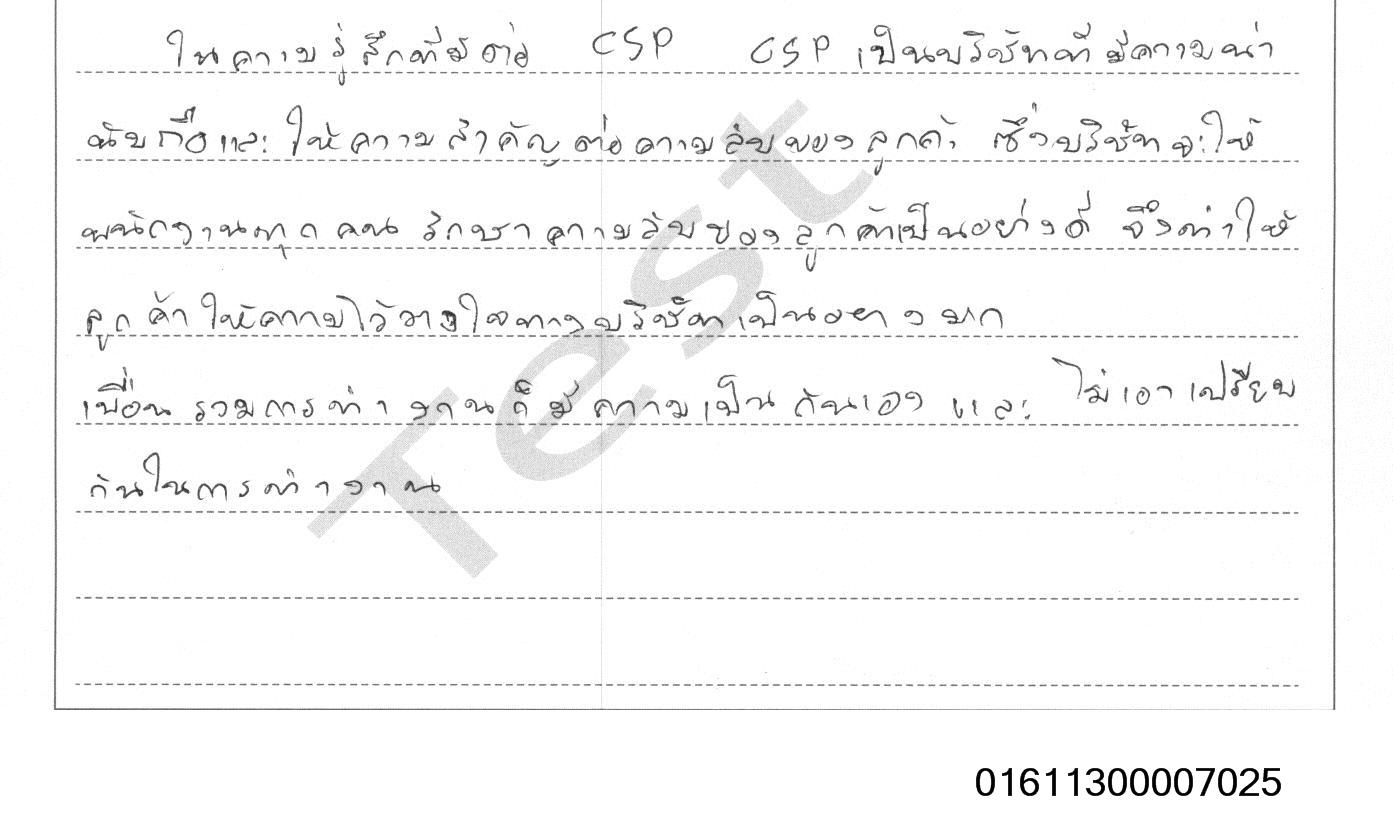 ในความรู้สึกที่มีต่อ CSP CSP เป็นบริษัทที่มีความน่า
นับถือและให้ความสำคัญต่อความลับของลูกค้า ซึ่งบริษัทจะให้
พนักงานทุกคนรักษาความลับของลูกค้าเป็นอย่างดี จึงทำให้
ลูกค้าให้ความไว้วางใจทางบริษัทเป็นอยางมาก
เพื่อนรวมการทำงานก็มีความเป็นกันเองและ ไม่เอาเปรียบ
กันในการทำงาน
Test
01611300007025